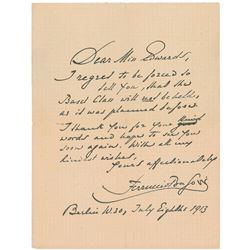 Dear Miss Edwards,
I regret to be forced to
tell You, that the
Basel Class will not be held,
as it was planned before.
I thank You for your kind
words and hope to see You
soon again. With all my
kindest wishes,
Yours affectionately
Ferruccio Busoni
Berlin W. 30, July Eighths 1913